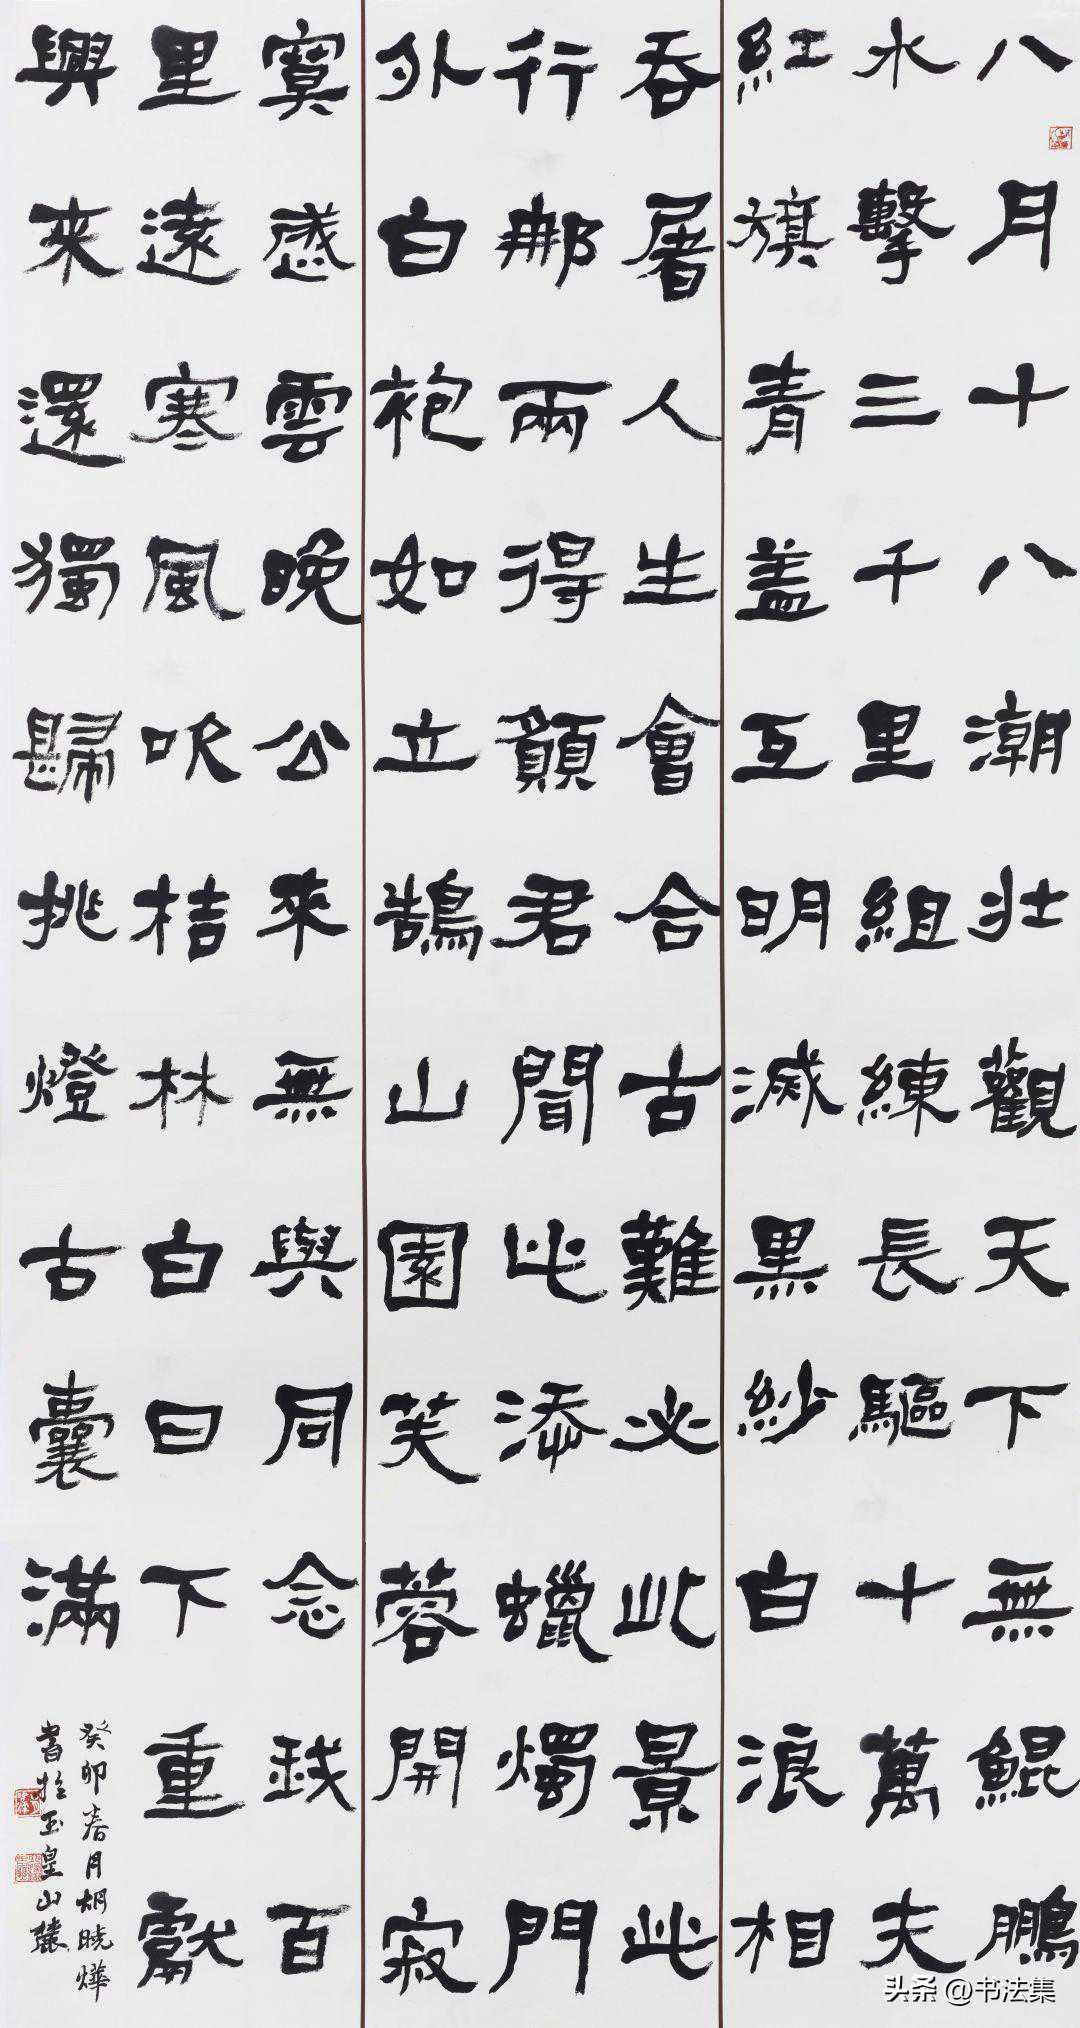 八月十八潮壯觀天下無鯤鵬
水擊三千里組練長驅十萬夫
紅旗青蓋互明滅黑紗白浪相
吞屠人生會合古難必此景此
行那兩得願君聞此添蠟燭門
外白袍如立鵠山園笑蓉開寂
寞感雲晚公來無與同念錢百
里遠寒風吹桔林白日下重獻
興來還獨歸挑燈古囊滿
癸卯春月胡曉燁
書於玉皇山麓
头条 @书法集